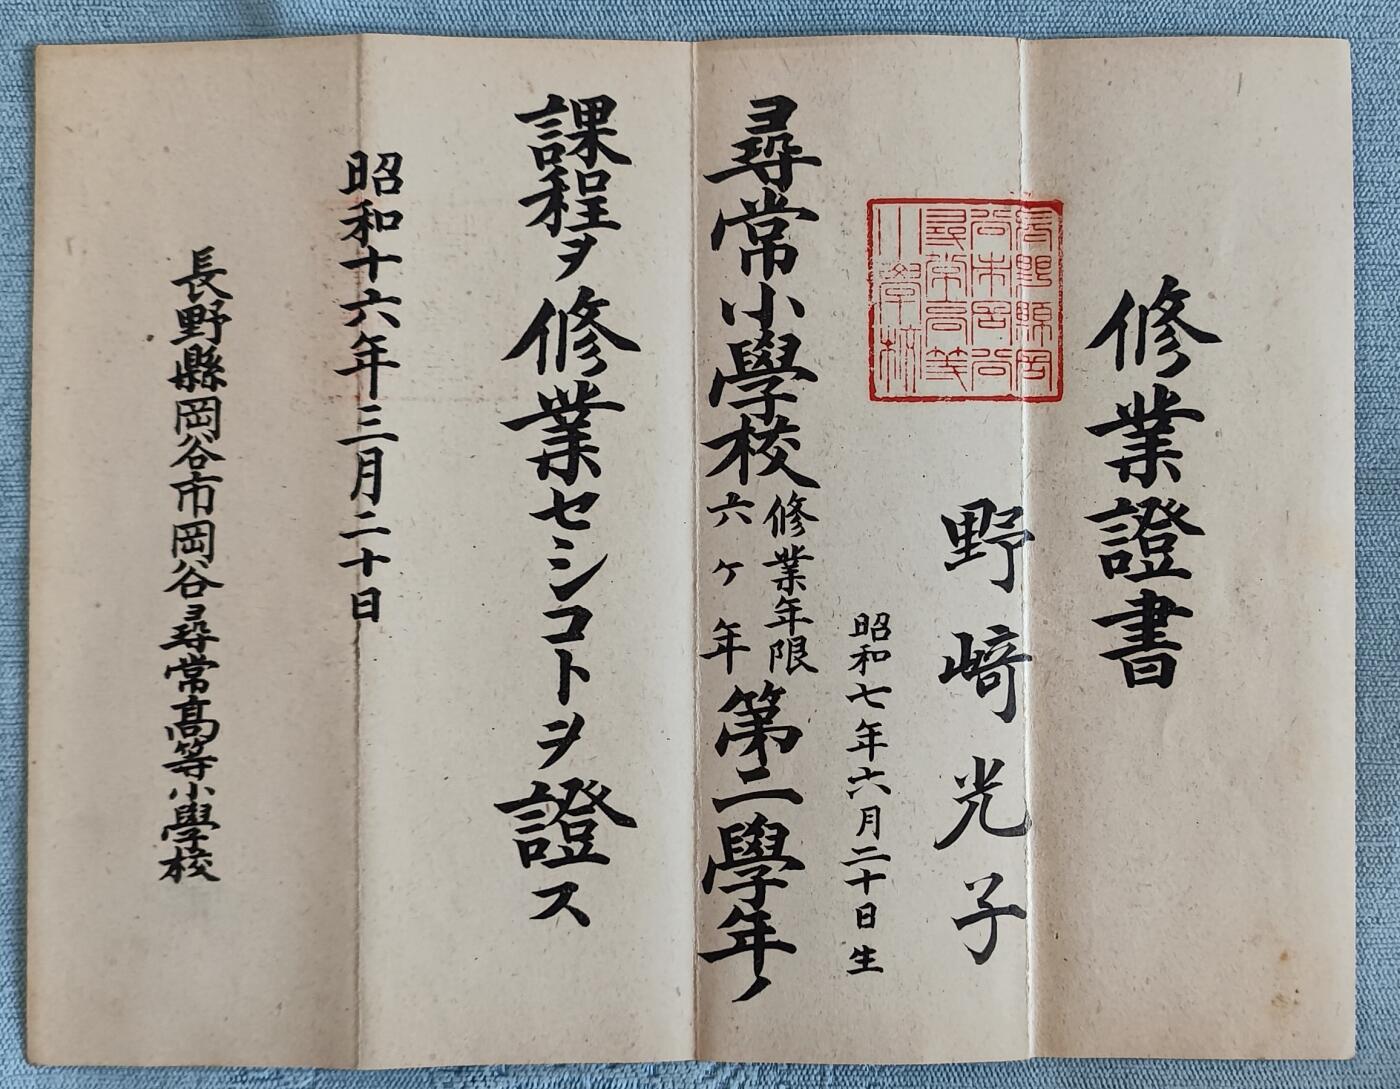 修業證書
長野縣岡
谷市岡谷
尋常高等
小學校
野﨑光子
昭和七年六月二十日生
尋常小學校修業年限六ケ年第二學年ノ
課程ヲ修業セシコトヲ證ス
昭和十六年三月二十日
長野縣岡谷市岡谷尋常高等小學校